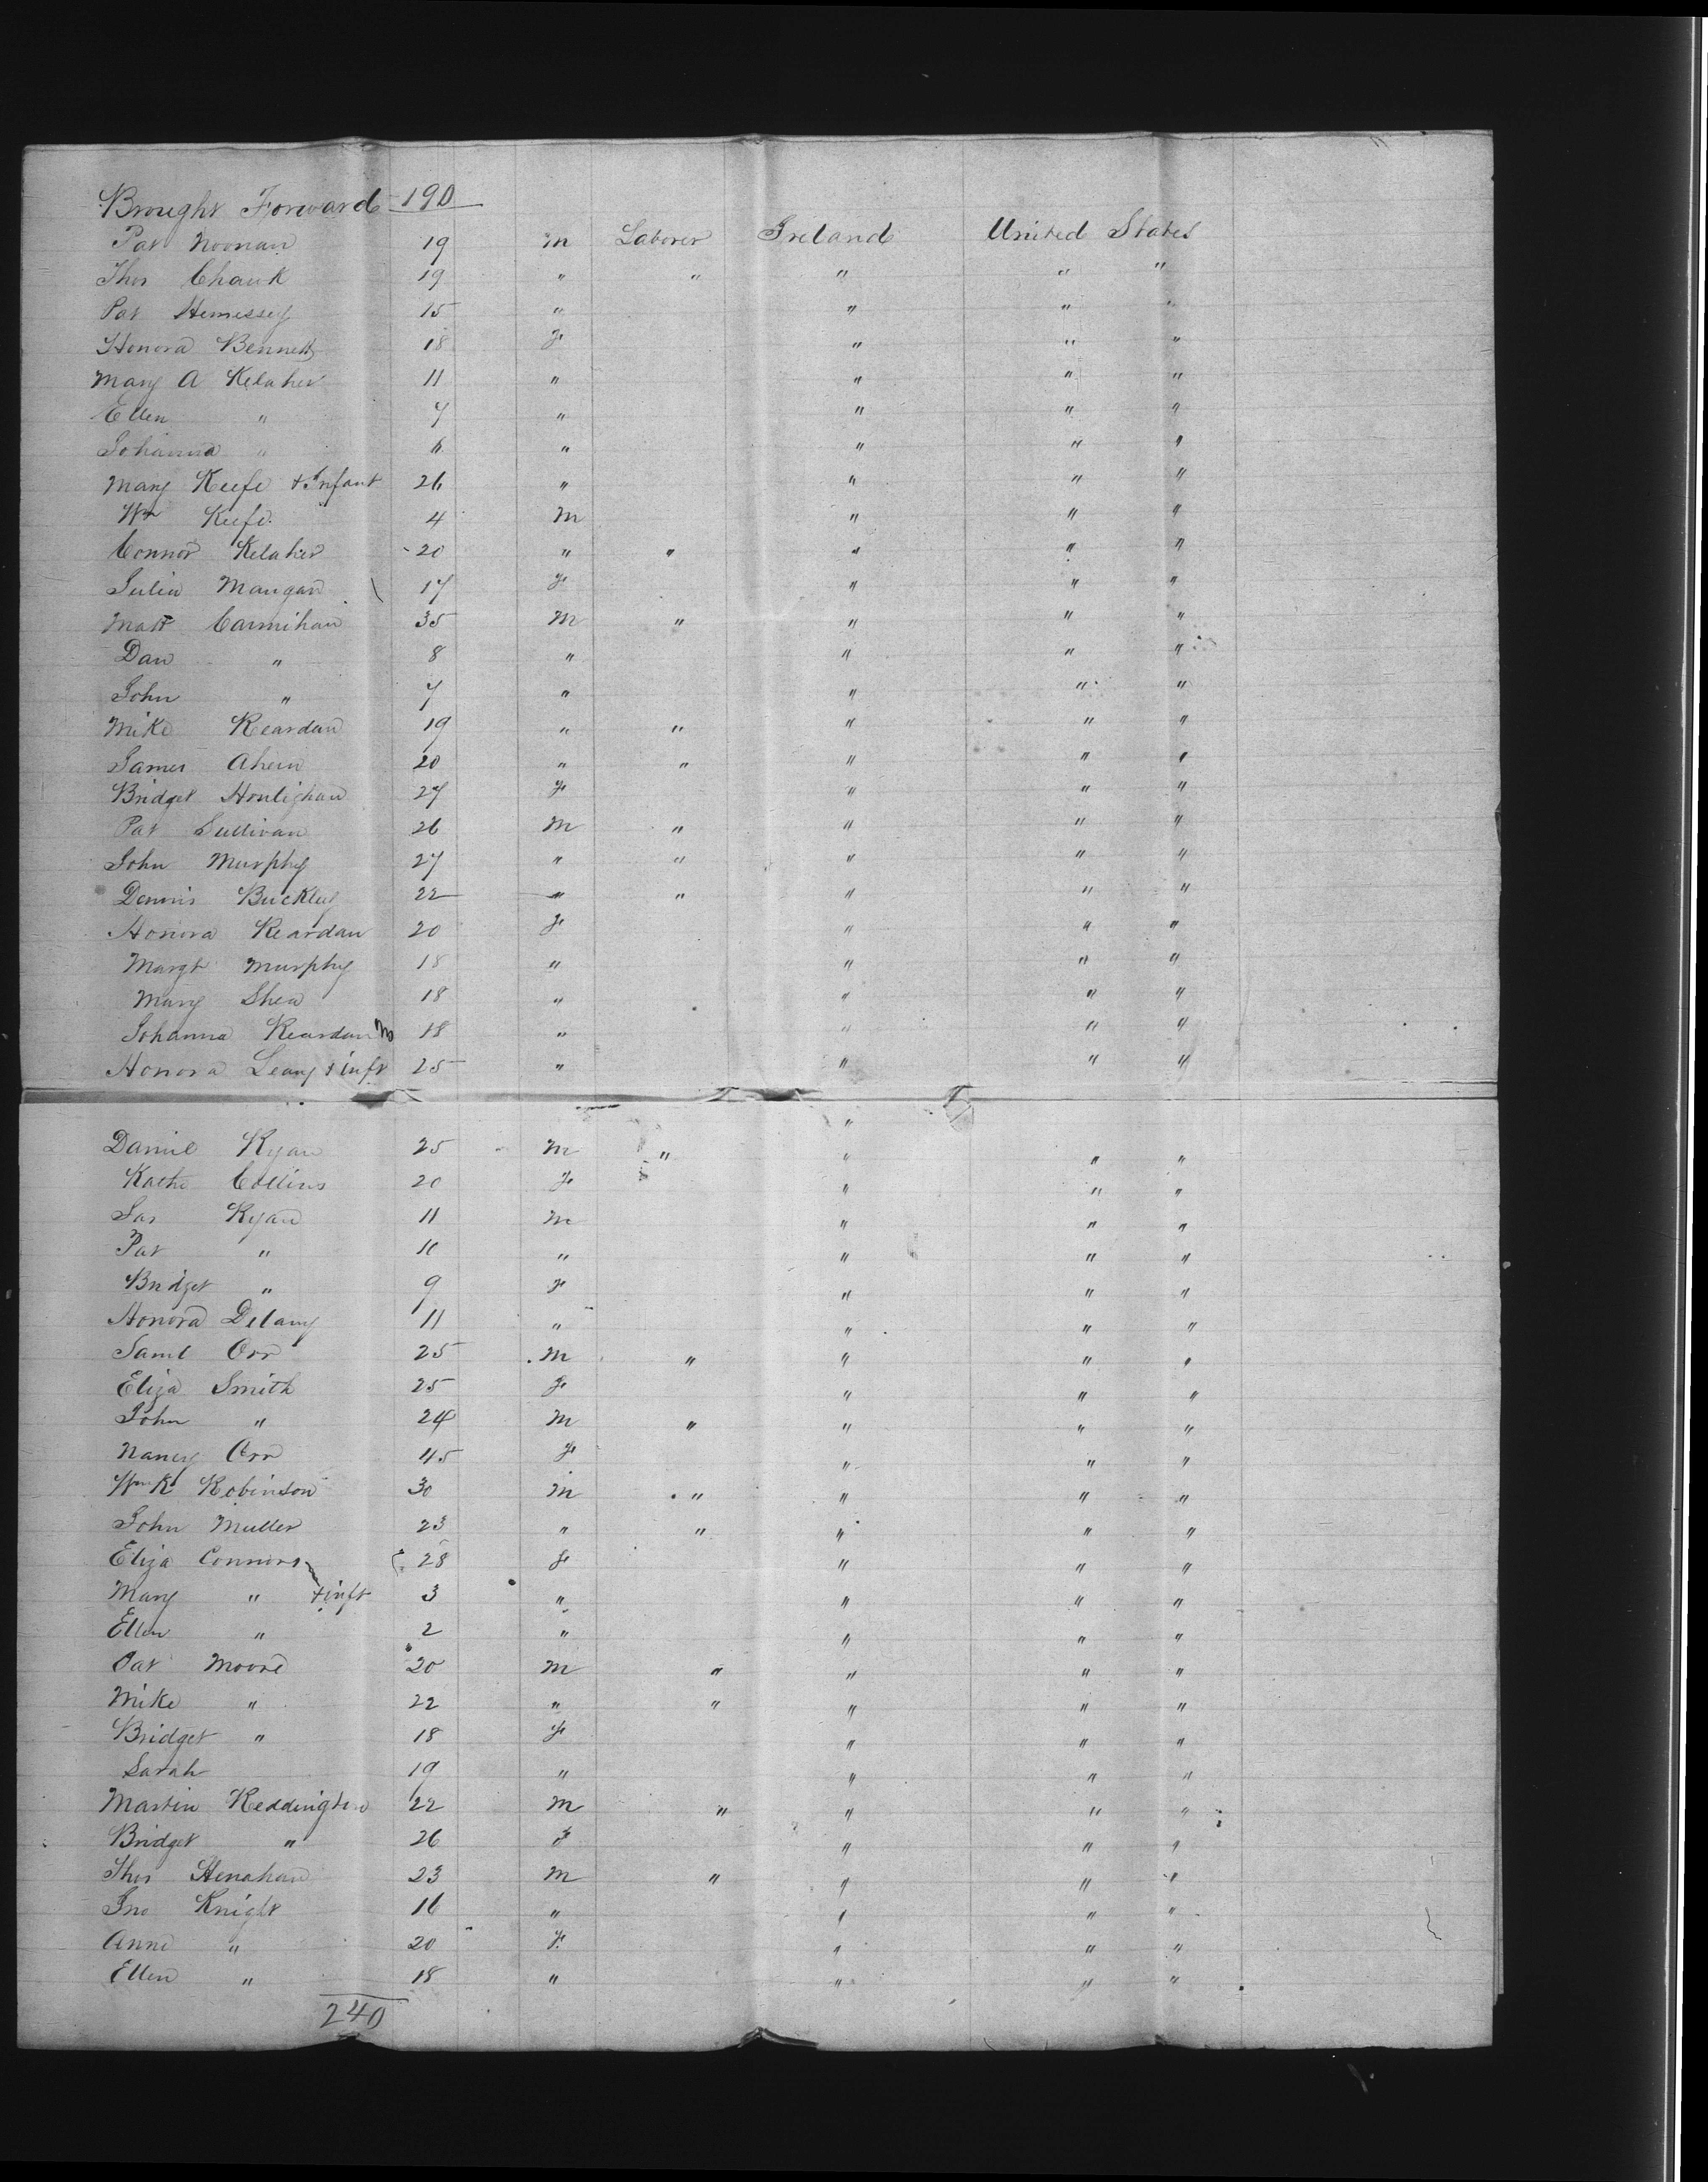 Brought Forward 190
Pat Noonan 19 m Laborer Ireland United States
Thos Chawk 19 " " " " "
Pat Hennessey 15 " " " "
Honora Bennett 18 f " " "
Mary A Kelaher 11 " " " "
Ellen " 7 " " " "
Johanna " 6 " " " "
Mary Keefe & Infant 26 " " " "
Wm Keefe 4 m " " "
Connor Kelaher 20 " " " " "
Julia Mangan 17 f " " "
Matt Carmihan 35 m " " " "
Dan " 8 " " " "
John " 7 " " " "
Mike Reardan 19 " " " " "
James Ahern 20 " " " " "
Bridget Houlighan 27 f " " "
Pat Sullivan 26 m " " " "
John Murphy 27 " " " " "
Dennis Buckley 22 " " " " "
Honora Reardan 20 f " " "
Margt Murphy 18 " " " "
Mary Shea 18 " " " "
Johanna Reardan 18 " " " "
Honora Leary & inft 25 " " " "
"
Daniel Ryan 25 m " " " "
Kathe Collins 20 f " " "
Jas Ryan 11 m " " "
Pat " 10 " " " "
Bridget " 9 f " " "
Honora Delany 11 " " " "
Saml Orr 25 m " " " "
Eliza Smith 25 f " " "
John " 24 m " " " "
Nancy Orr 45 f " " "
Wm K Robinson 30 m " " " "
John Muller 23 " " " " "
Eliza Connors 28 f " " "
Mary " & inft 3 " " " "
Ellen " 2 " " " "
Pat Moore 20 m " " " "
Mike " 22 " " " " "
Bridget " 18 f " " "
Sarah 19 " " " "
Martin Reddington 22 m " " " "
Bridget " 26 f " " "
Thos Henahan 23 m " " " "
Jno Knight 16 " " " "
Anne " 20 f. " " "
Ellen " 18 " " " "
240